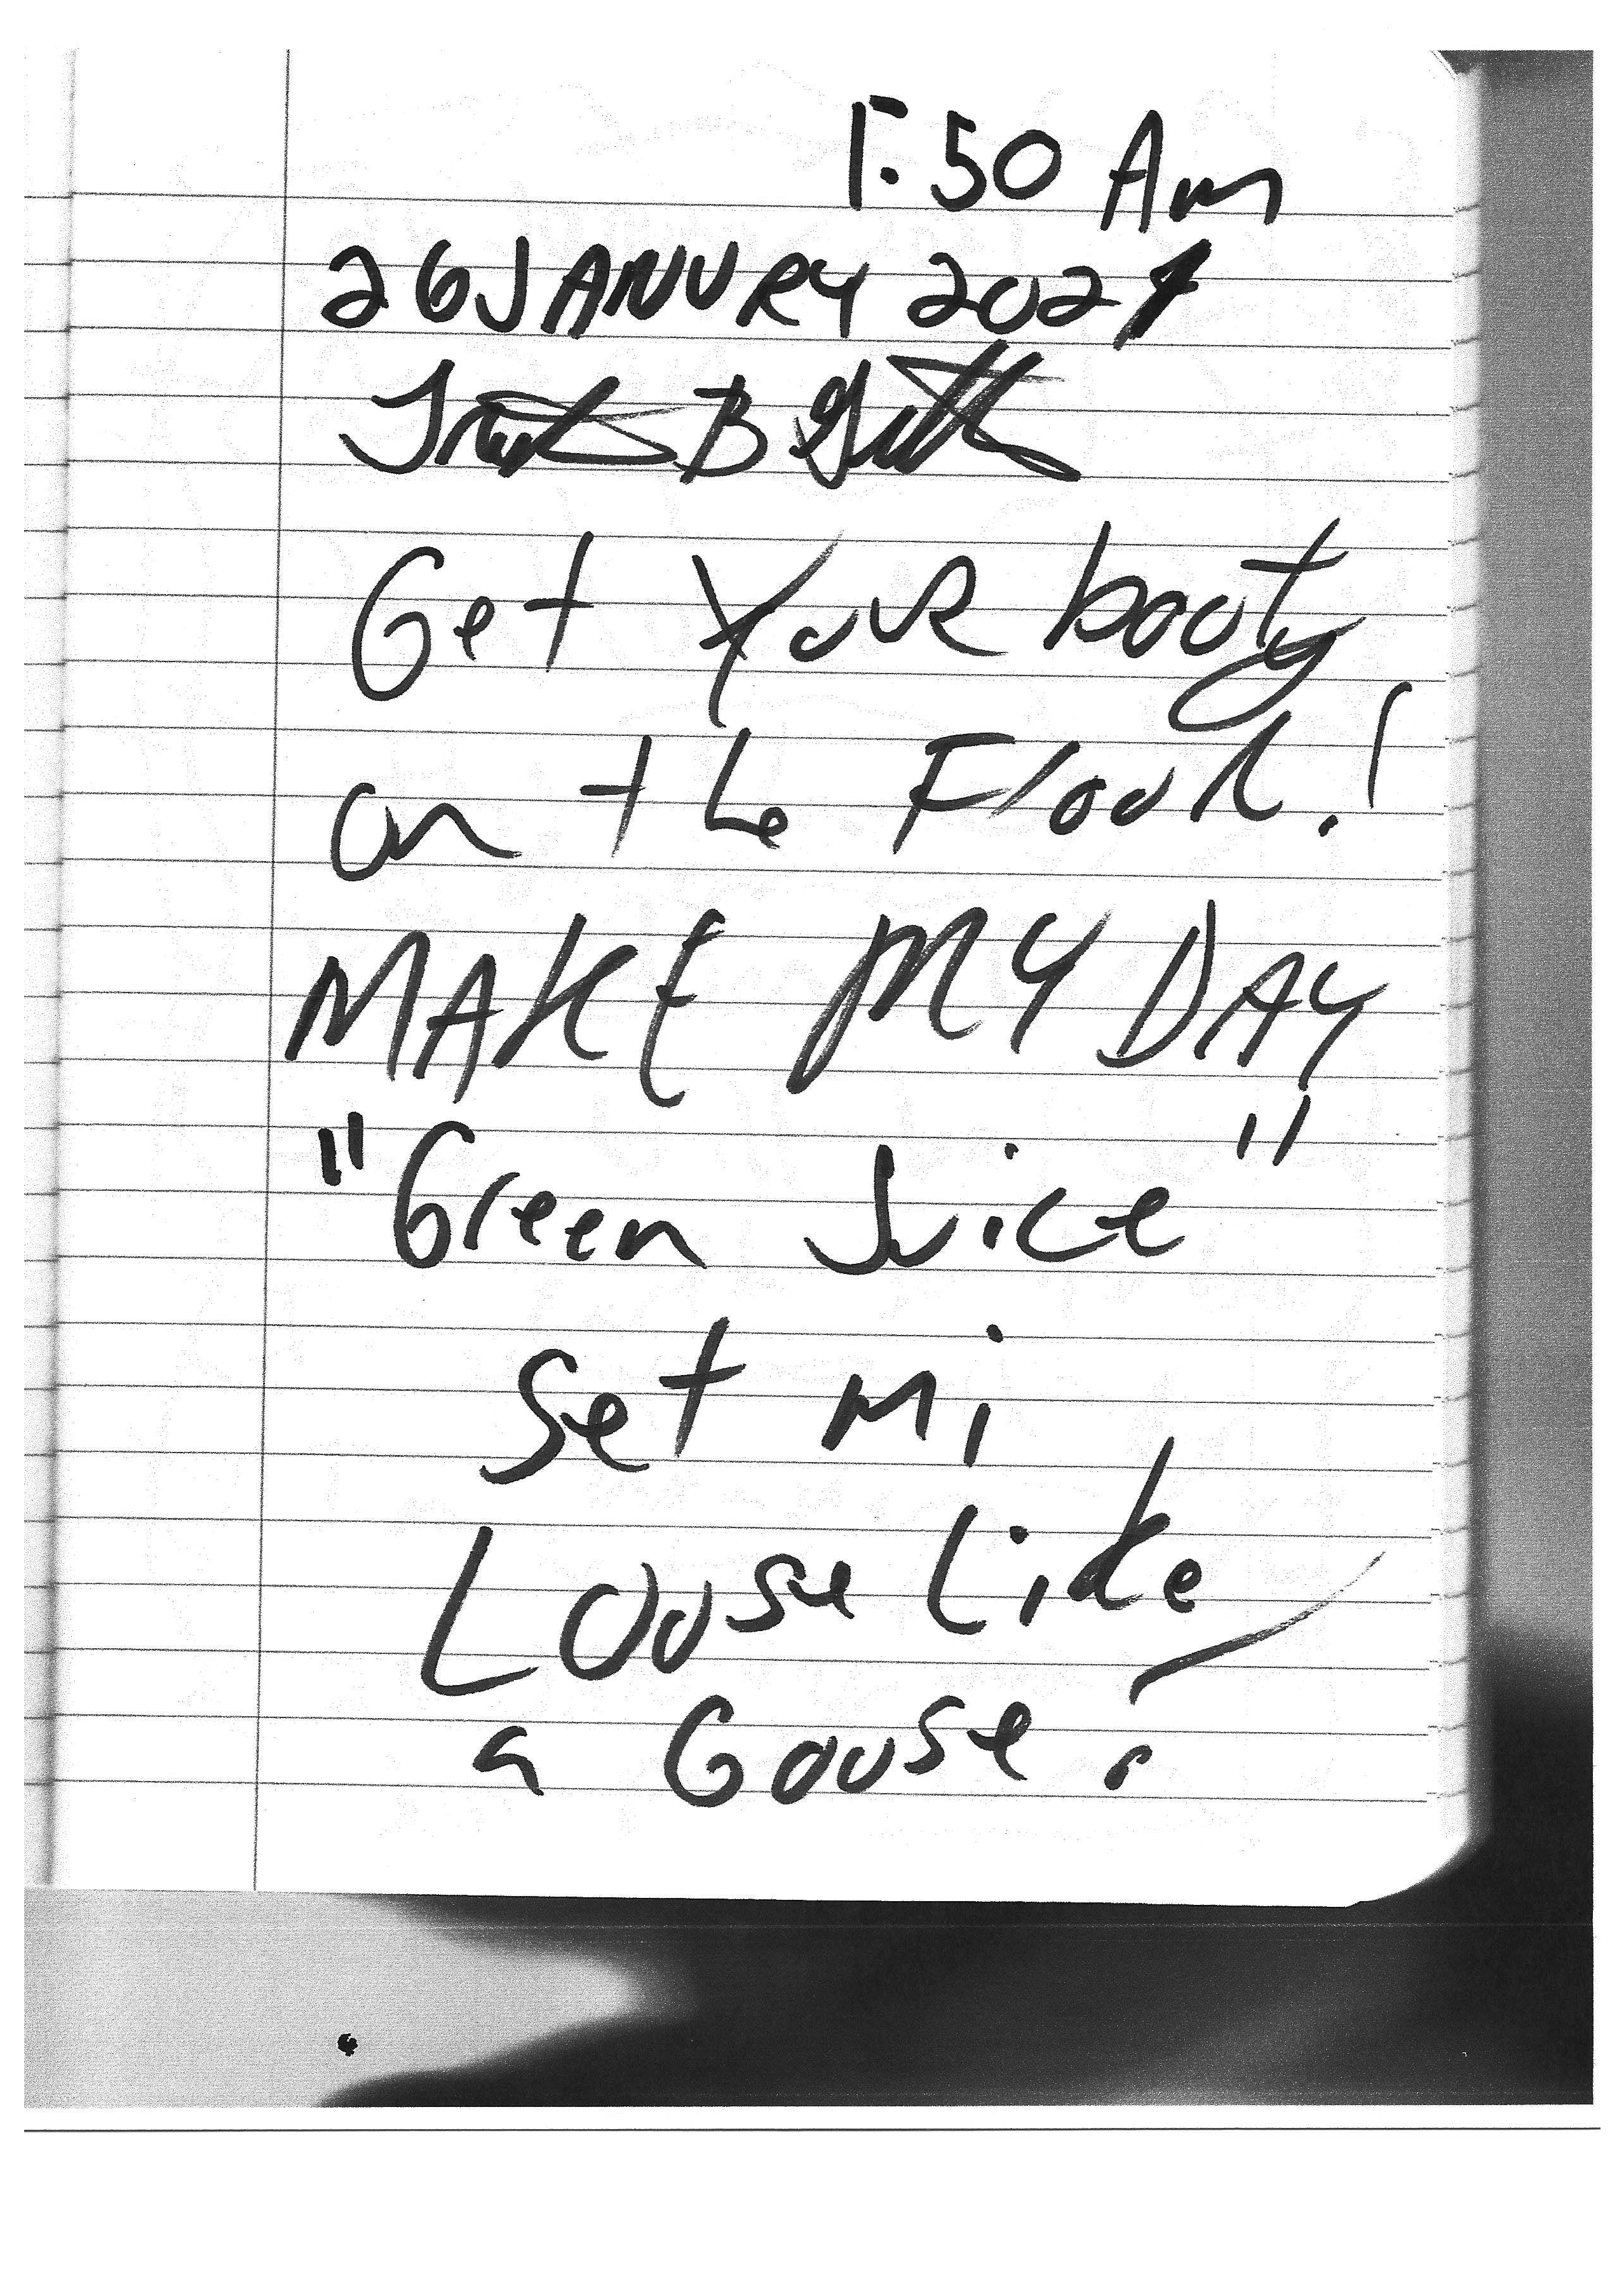 1:50 Am
26 JANURY 2021
B
Get Your booty
on the Floor!
MAKE MY DAY
"Green Juice"
Set mi
Loose Like
a Goose!